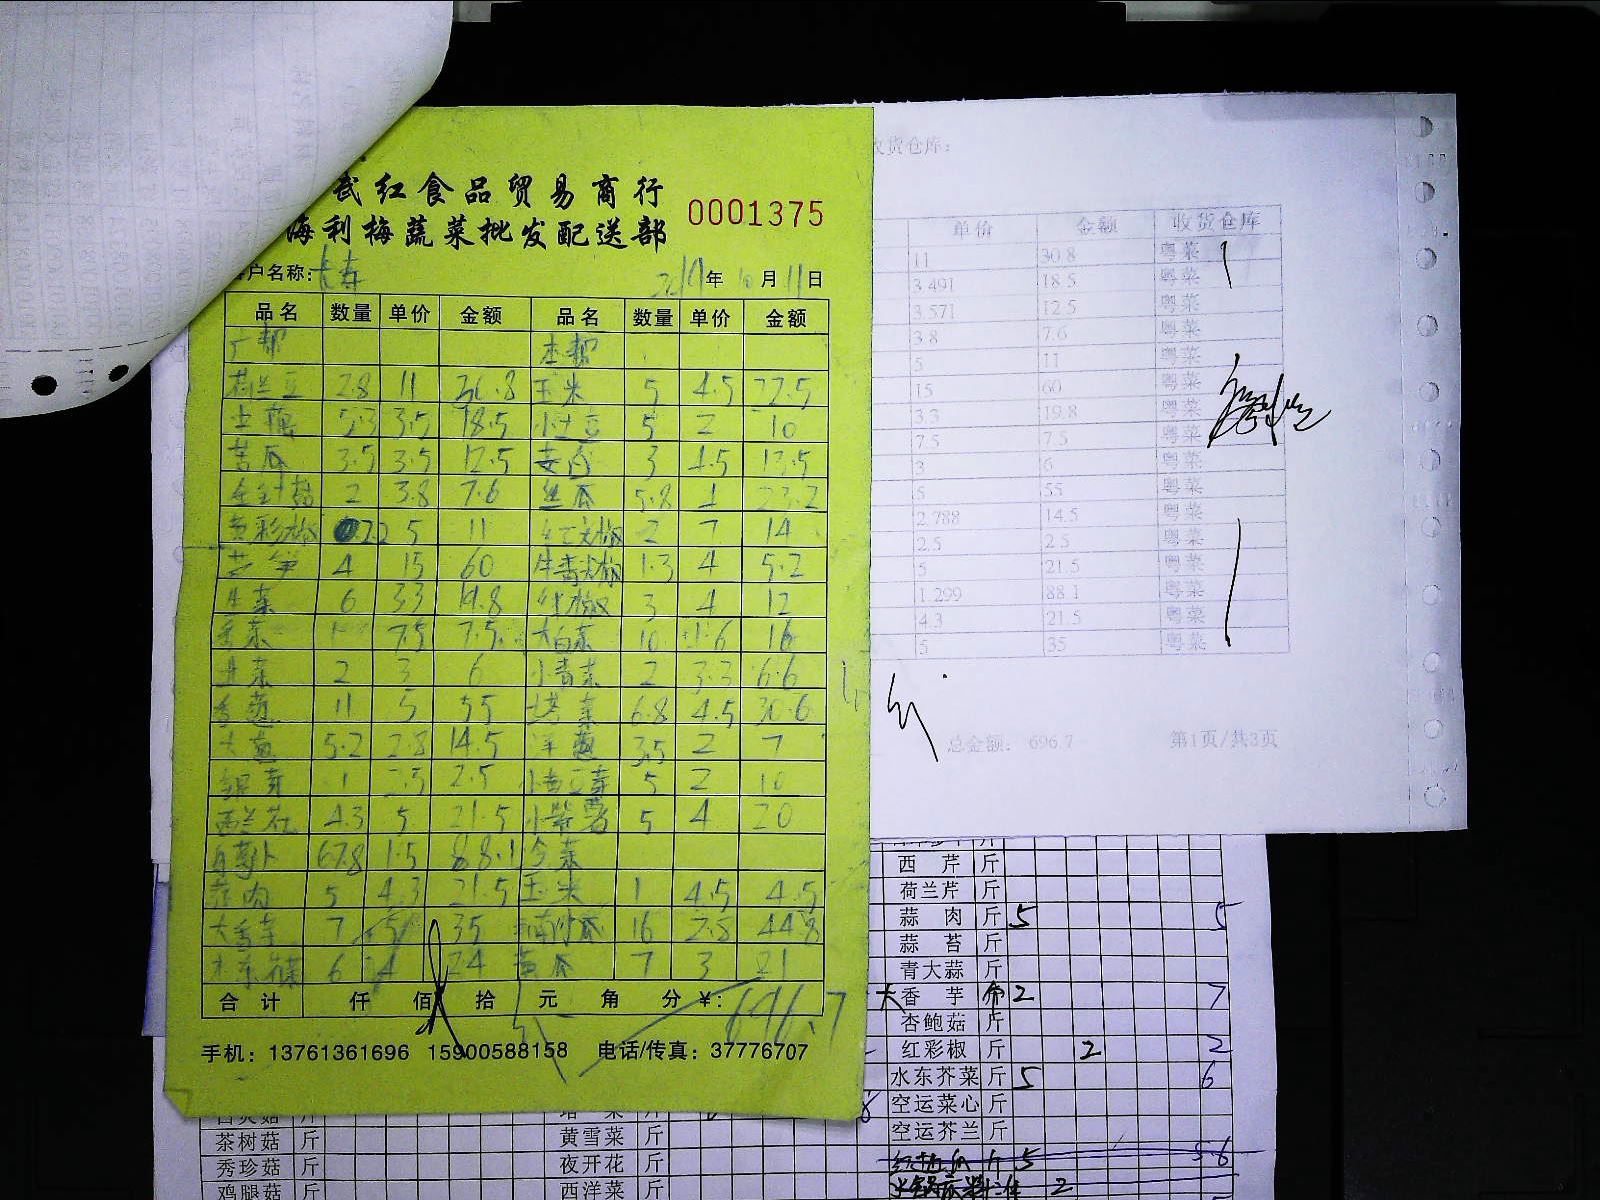 武红食品贸易商行
海利梅蔬菜批发配送部
0001375
户名称:
年 月11日
品名 数量 单价 金额 品名 数量 单价 金额
广帮 本帮
荷兰豆 2.8 11 30.8 玉米 5 4.5 22.5
土藕 5.3 3.5 18.5 小土豆 5 2 10
苦瓜 3.5 3.5 12.5 3 4.5 13.5
金针菇 2 3.8 7.6 丝瓜 5.8 4 23.2
黄彩椒 2.2 5 11 红尖椒 2 7 14
芦笋 4 15 60 牛青尖椒 1.3 4 5.2
生菜 6 3.3 19.8 3 4 12
1 7.5 7.5 大白菜 10 1.6 16
2 3 6 小青菜 2 3.3 6.6
香葱 11 5 55 塔菜 6.8 4.5 30.6
大葱 5.2 2.8 14.5 洋葱 3.5 2 7
银芽 1 2.5 2.5 小黄豆芽 5 2 10
西兰花 4.3 5 21.5 小紫薯 5 4 20
白萝卜 67.8 1.5 88.1 冷菜
蒜肉 5 4.3 21.5 玉米 1 4.5 4.5
大香芋 7 5 35 南瓜 16 2.8 44.8
水东芥菜 6 4 24 黄瓜 7 3 21
合计 仟 佰 拾 元 角 分 ¥: 696.7
手机: 13761361696 15900588158 电话/传真: 37776707
收货仓库:
单价 金额 收货仓库
11 30.8 粤菜
3.491 18.5 粤菜
3.571 12.5 粤菜
3.8 7.6 粤菜
5 11 粤菜
15 60 粤菜
3.3 19.8 粤菜
7.5 7.5 粤菜
3 6 粤菜
5 55 粤菜
2.788 14.5 粤菜
2.5 2.5 粤菜
5 21.5 粤菜
1.299 88.1 粤菜
4.3 21.5 粤菜
5 35 粤菜
总金额: 696.7 第1页/共3页
西芹 斤
荷兰芹 斤
蒜肉 斤 5 5
蒜苔 斤
青大蒜 斤
大香芋 2 7
杏鲍菇 斤
红彩椒 斤 2 2
水东芥菜 斤 5 6
空运菜心 斤
空运芥兰 斤
茶树菇 斤 黄雪菜 斤
秀珍菇 斤 夜开花 斤
鸡腿菇 斤 西洋菜 斤